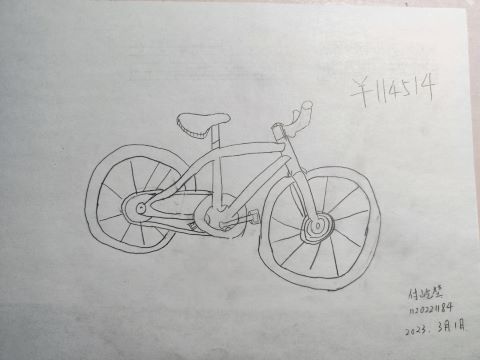 ¥114514
1120221184
2023.3月1日